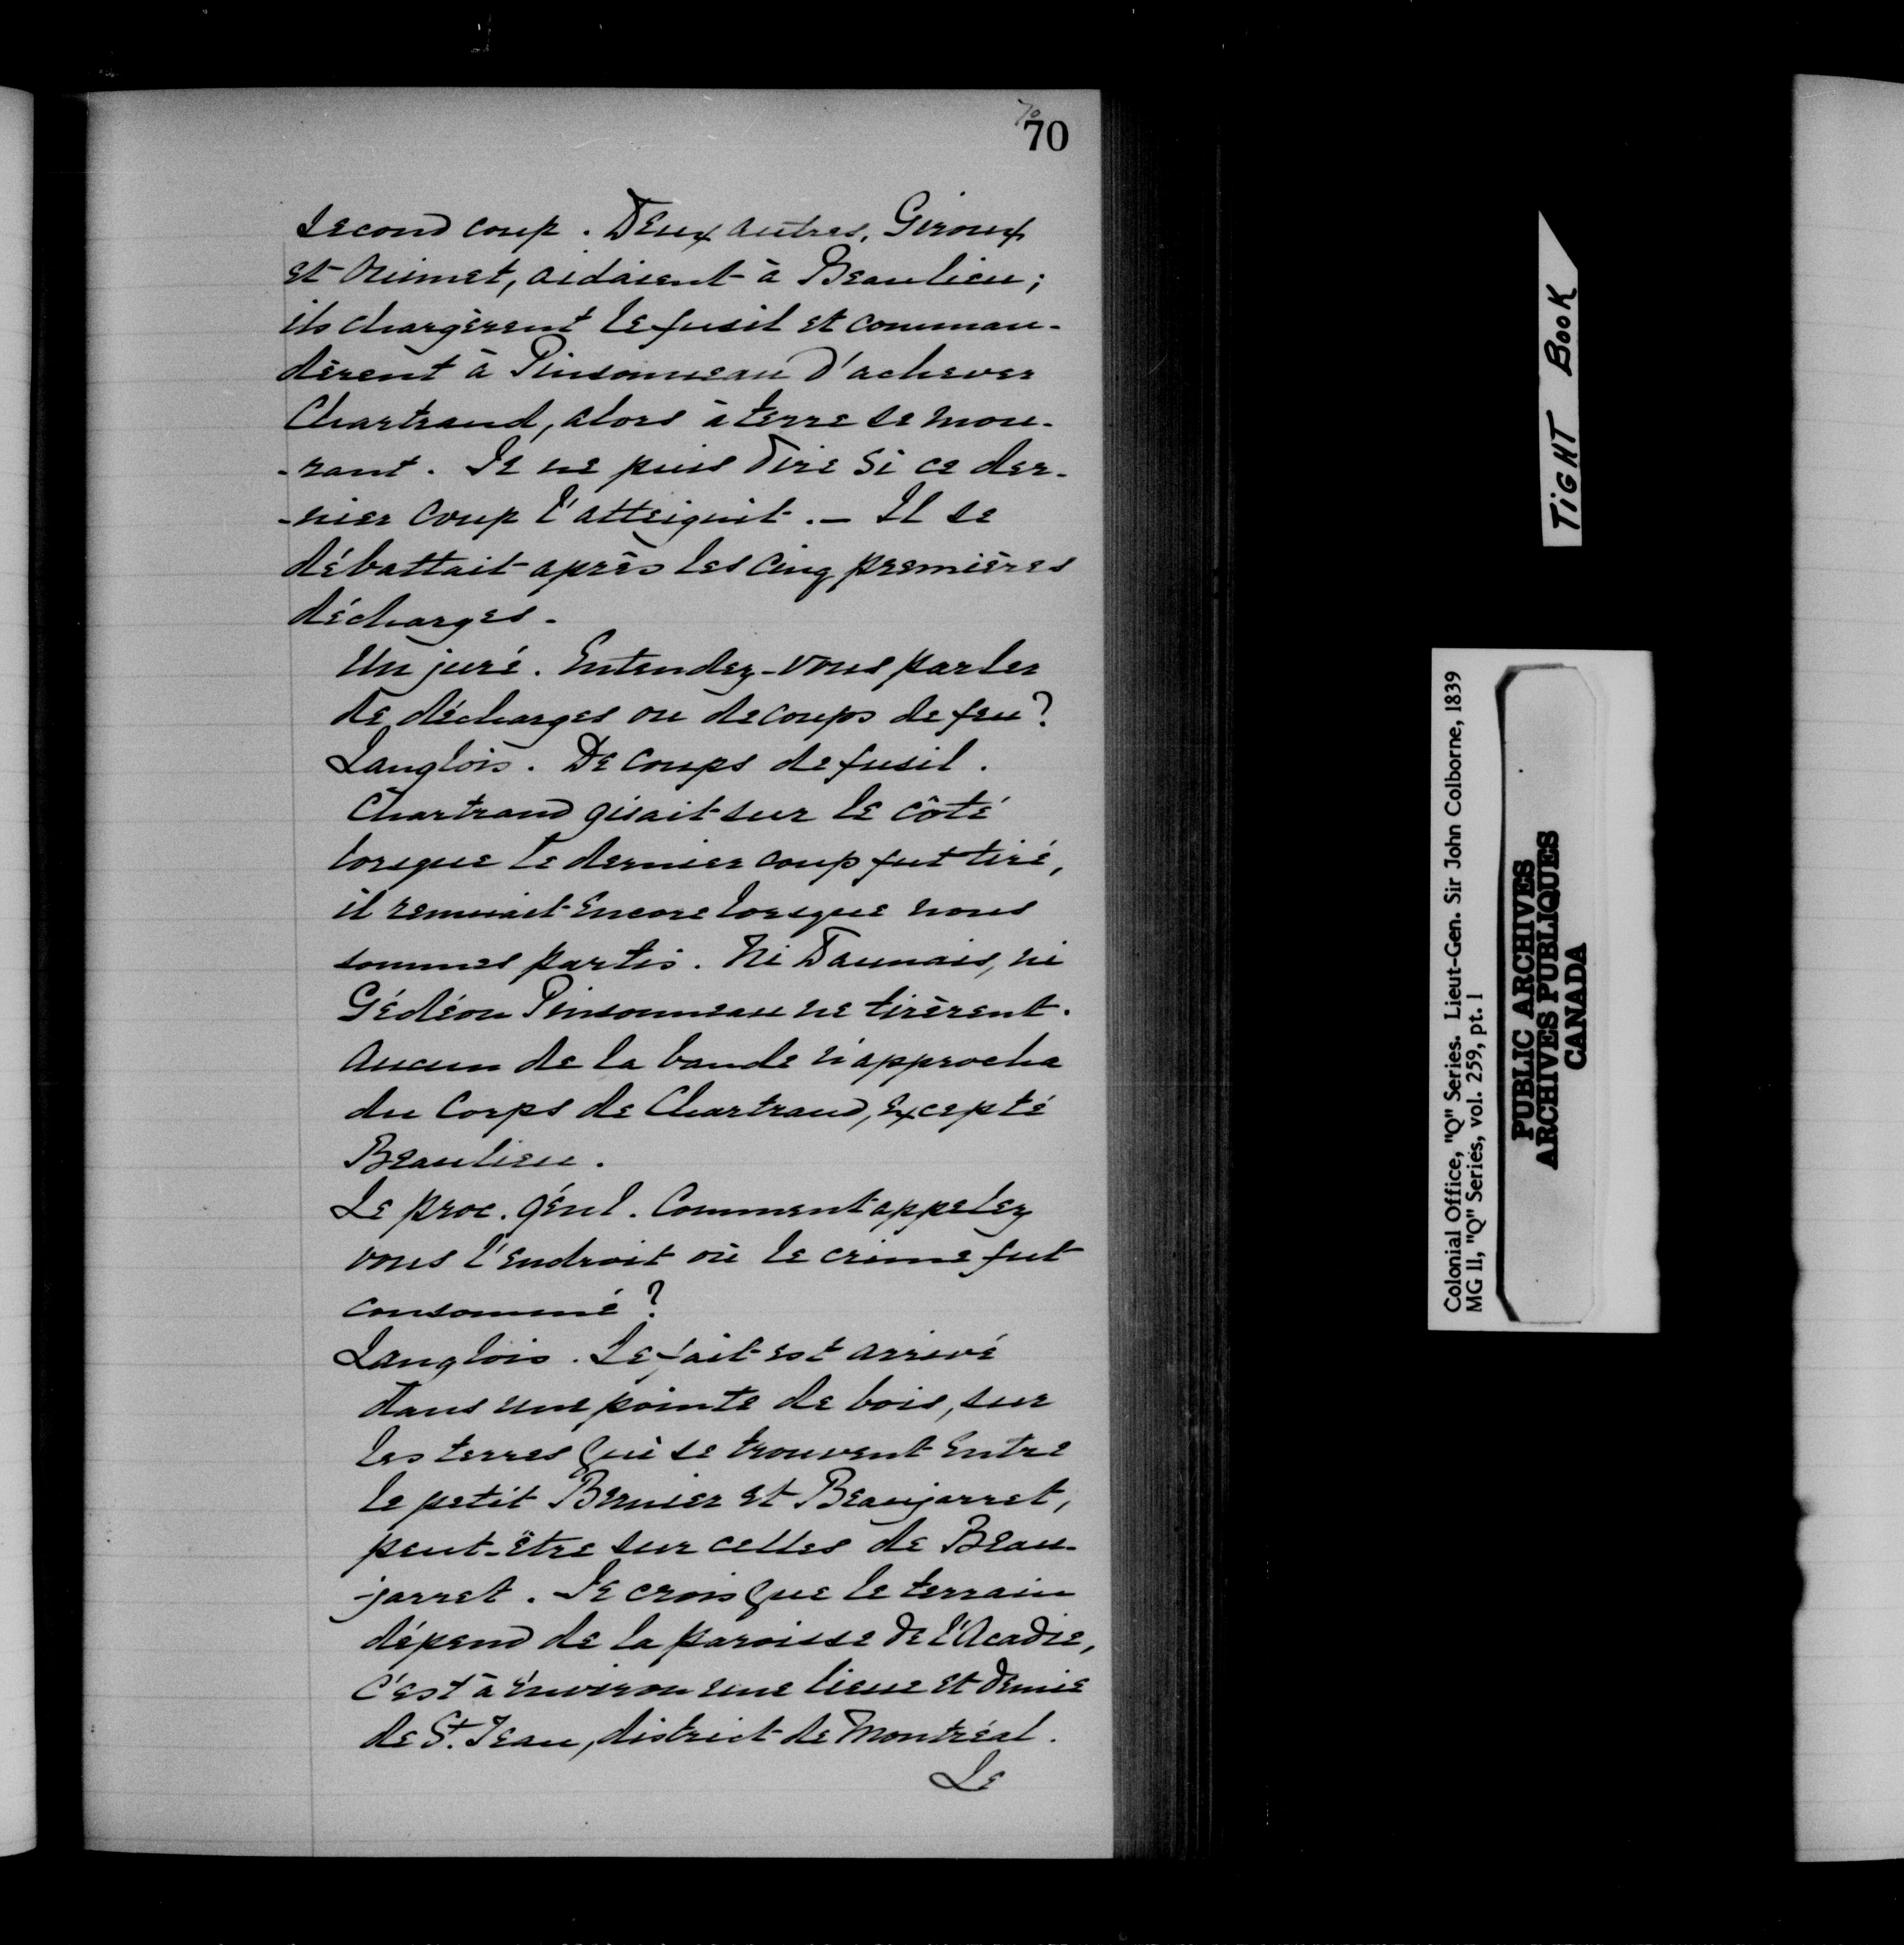 70
70
second coup. Deux autres, Giroux
et Ouimet, aidaient à Beaulieu;
ils chargèrent le fusil et comman-
dèrent à Pinsonneau d'achever
Chartrand, alors à terre se mou-
-rant. Je ne puis dire si ce der-
-nier coup l'atteignit. - Il se
débattait après les cinq premières
décharges.
Un juré. Entendez-vous parler
de décharges ou de coups de feu?
Langlois. De coups de fusil.
Chartrand gisait sur le côté
lorsque le dernier coup fut tiré,
il remuait encore lorsque nous
sommes partis. Ni Daunais, ni
Gédéon Pinsonneau ne tirèrent.
Aucun de la bande n'approcha
du corps de Chartrand, excepté
Beaulieu.
Le proc. génl. Comment appelez
vous l'endroit où le crime fut
consommé?
Langlois. Le fait est arrivé
dans une pointe de bois, sur
les terres qui se trouvent entre
le petit Bernier et Beaujarret,
peut-être sur celles de Beau-
-jarret. Je crois que le terrain
dépend de la paroisse de l'Acadie,
c'est à environ une lieue et demie
de St. Jean, district de Montréal.
Le
TIGHT BOOK
Colonial Office, "Q" Series. Lieut-Gen. Sir John Colborne, 1839
MG 11, "Q" Series, vol. 259, pt. 1
PUBLIC ARCHIVES
ARCHIVES PUBLIQUES
CANADA